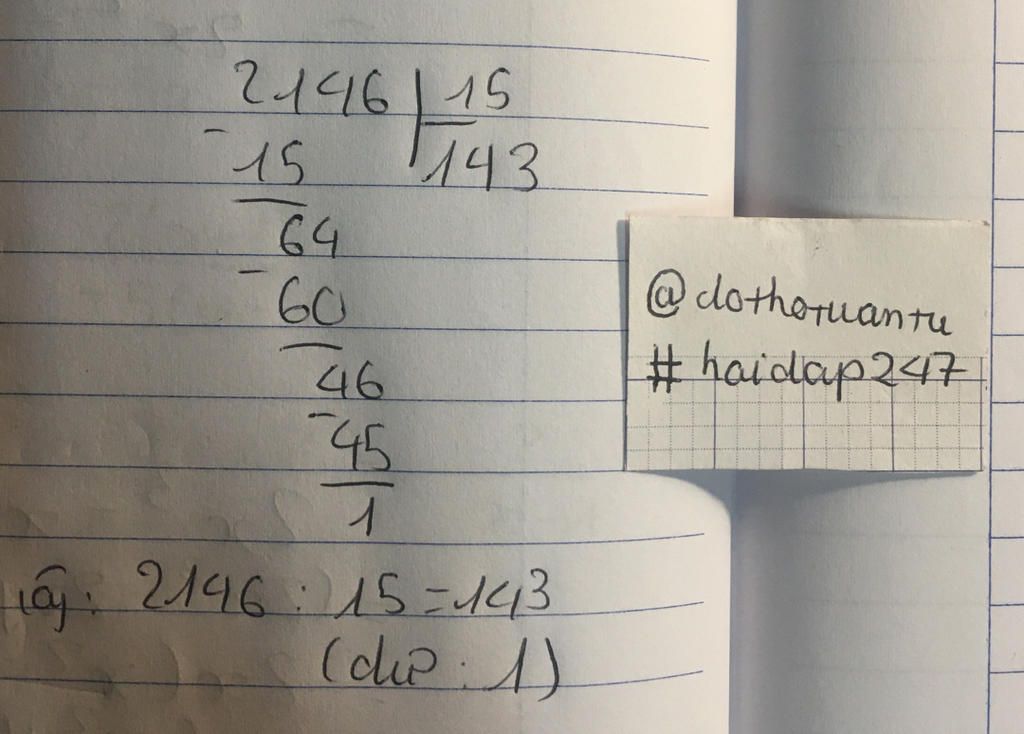 2146 15
- 15 143
64
- 60
46
- 45
1
: 2146 : 15 = 143
(dư : 1)
@dothotuantu
# haidap247